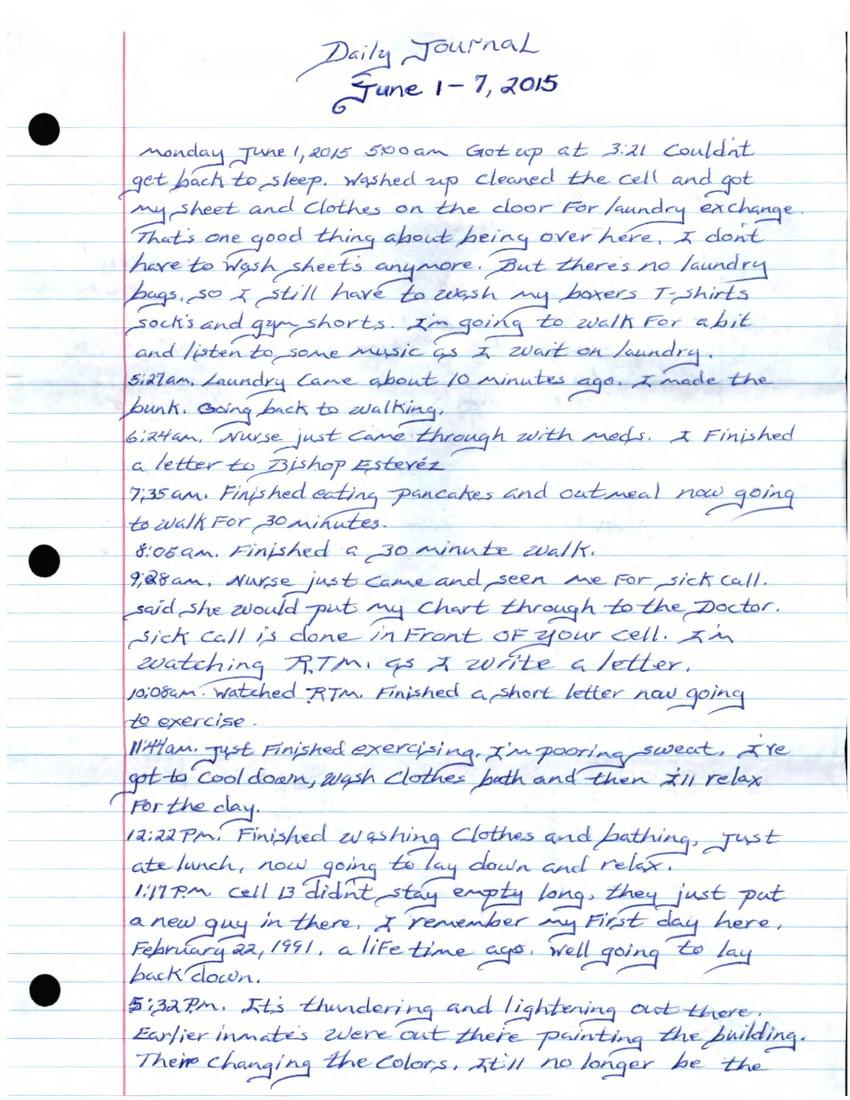 Daily Journal
June 1-7, 2015
Monday June 1, 2015 5:00am Got up at 3:21 Couldn't
get back to sleep. Washed up cleaned the cell and got
my sheet and Clothes on the door For laundry exchange.
That's one good thing about being over here. I don't
have to Wash sheet's anymore. But there's no laundry
bags, so I still have to wash my boxers T-shirts
sock's and gym shorts. I'm going to walk For a bit
and listen to some music as I wait on laundry.
5:27am. Laundry Came about 10 minutes ago. I made the
bunk. Going back to walking.
6:24am. Nurse just Came through with meds. I Finished
a letter to Bishop Estevéz
7:35am. Finished eating pancakes and outmeal now going
to walk For 30 minutes.
8:08am. Finished a 30 minute walk.
9:28am. Nurse just Came and seen me For sick call.
said she would put my Chart through to the Doctor.
sick Call is done in Front OF your cell. I'm
watching R.T.M. as I write a letter.
10:08am. Watched R.T.M. Finished a short letter now going
to exercise.
11:44am. Just Finished exercising. I'm pooring sweat. I've
got to Cool down, wash Clothes bath and then I'll relax
For the day.
12:22 P.m. Finished washing Clothes and bathing, Just
ate lunch, now going to lay down and relax.
1:17 P.m Cell 13 didn't stay empty long, they just put
a new guy in there. I remember my First day here,
February 22, 1991. a liFe time ago. Well going to lay
back down.
5:32 P.m. It's thundering and lightening out there.
Earlier inmate's were out there painting the building.
Their Changing the Colors. It'll no longer be the